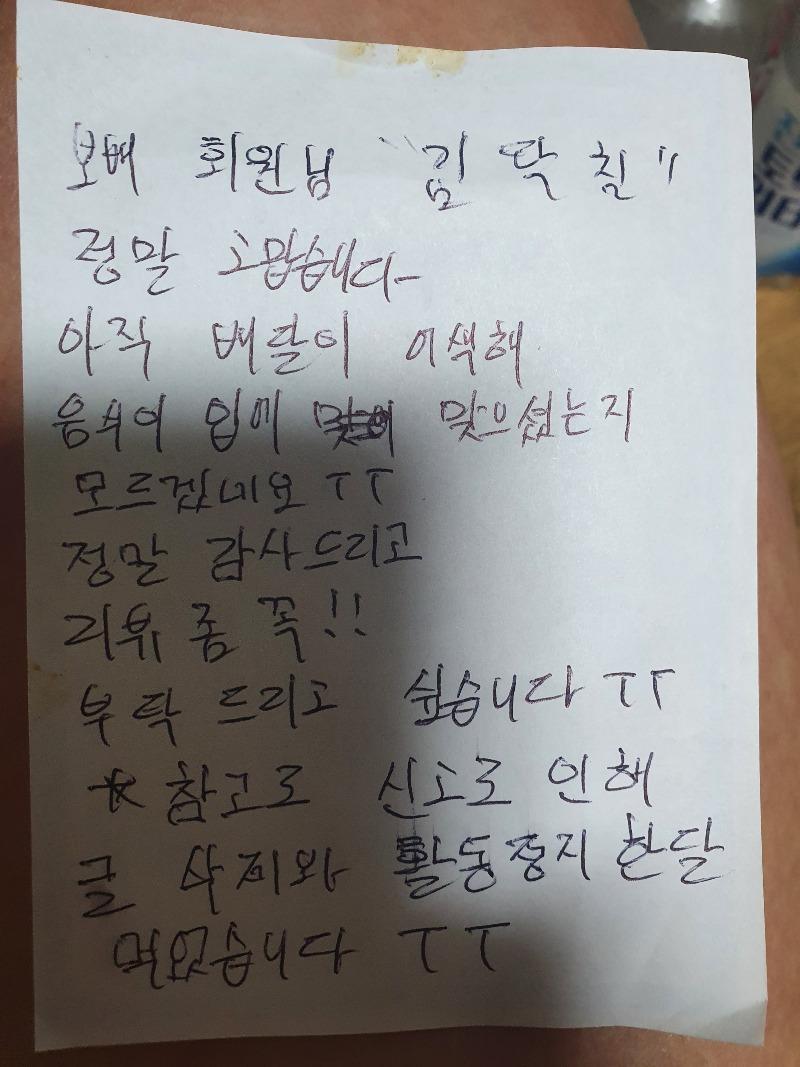 보배 회원님 "김 딱 칠"
정말 고맙습니다~
아직 배달이 어색해
음식이 입에 맞으셨는지
모르겠네요 ㅜㅜ
정말 감사드리고
리뷰 좀 꼭!!
부탁 드리고 싶습니다 ㅜㅜ
☆ 참고로 신고로 인해
글 삭제와 활동중지 한달
먹었습니다 ㅜㅜ